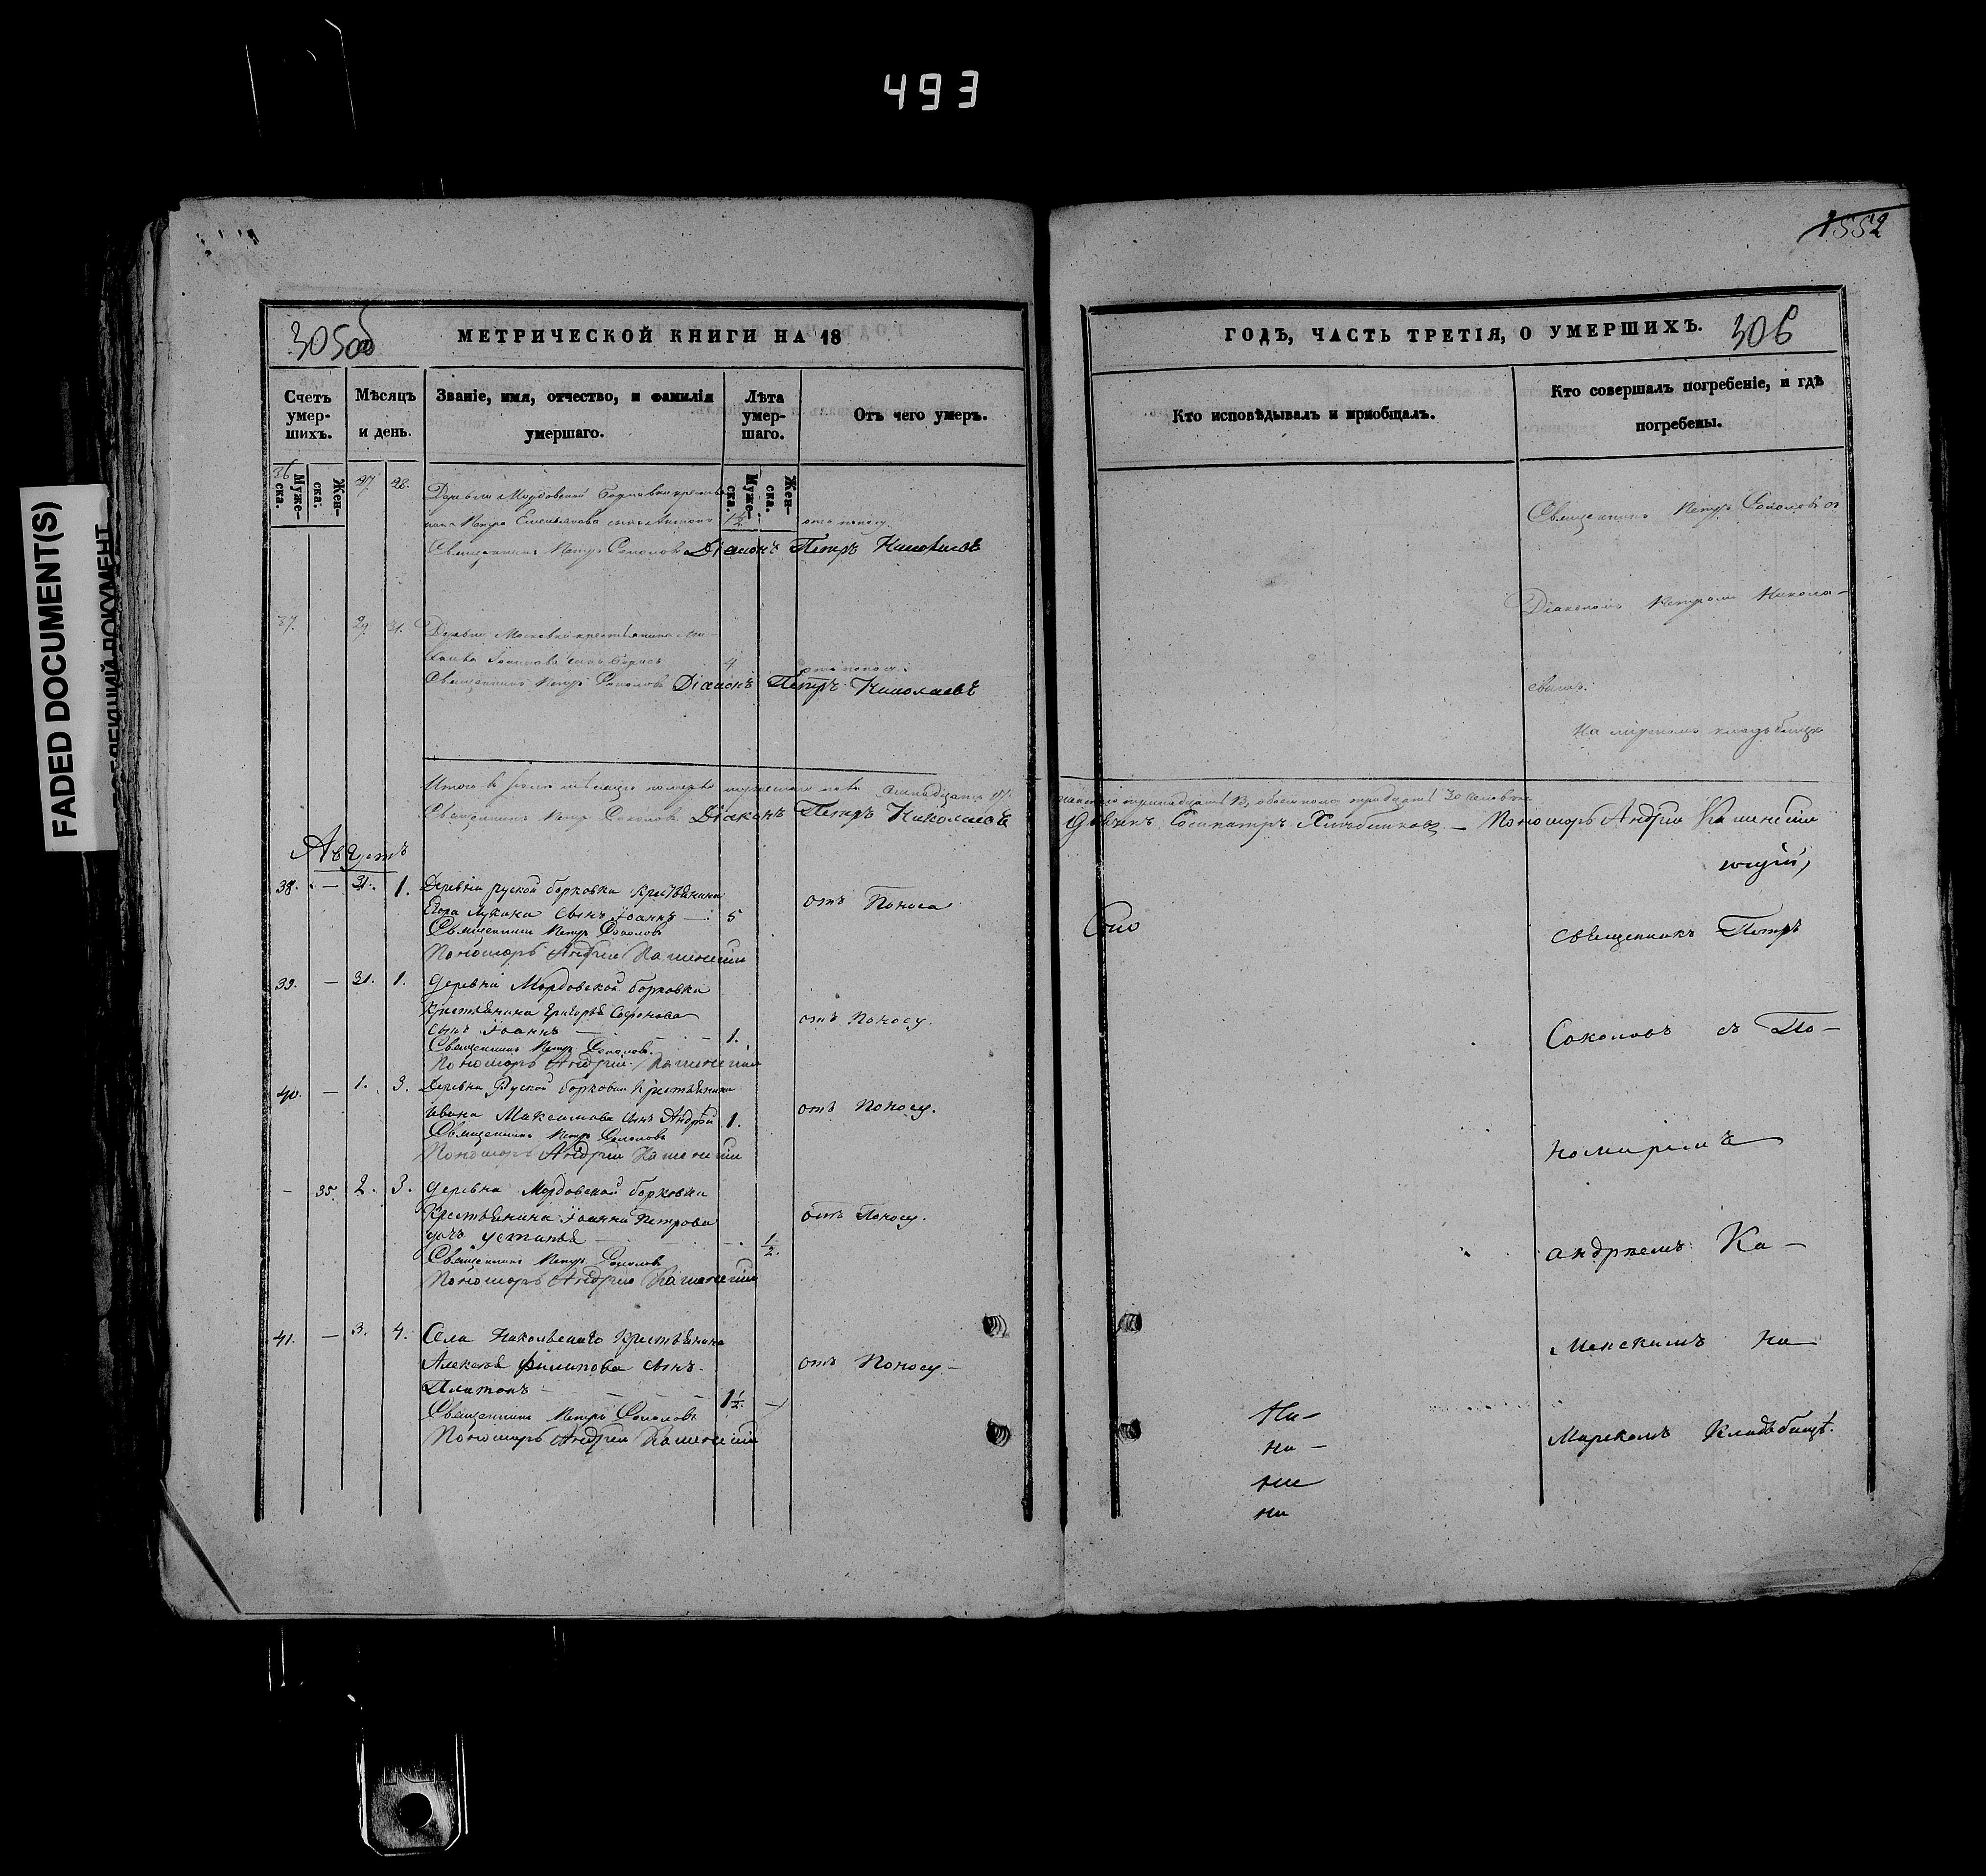 493
FADED DOCUMENT(S)
1552
305 об
МЕТРИЧЕСКОЙ КНИГИ НА 18
ГОДЪ, ЧАСТЬ ТРЕТІЯ, О УМЕРШИХЪ.
306
Счетъ умер-шихъ.
Мѣсяцъ и день.
Званіе, имя, отчество, и фамилія умершаго.
Лѣта умер-шаго.
Отъ чего умеръ.
Кто исповѣдывалъ и приобщалъ.
Кто совершалъ погребеніе, и гдѣ погребены.
Муже-ска.
Жен-ска.
Муже-ска.
Жен-ска.
36 27. 28. Деревни Мордовской Борковки крестья-
нина Петра Емельянова сынъ 1½ отъ поносу
Священникъ Петръ Соколовъ Діаконъ Петръ Николаевъ
37. 29. 31. Деревни крестьянина
сынъ Борисъ 4 отъ поноса.
Священникъ Петръ Соколовъ Діаконъ Петръ Николаевъ
Священникъ Петръ Соколовъ съ
Діакономъ Петромъ Никола-
евымъ.
На мірскомъ кладбищѣ
Итого въ Іюлѣ мѣсяцѣ померло мужеска пола семнадцать 17.
женскаго тринадцать 13, обоего пола тридцать 30 человѣкъ
Священникъ Петръ Соколовъ Діаконъ Петръ Николаевъ
Дьячекъ Сосипатръ Хлѣбниковъ — Пономарь Андрей Каменскій
Августъ
38. — 31. 1. Деревни руской борковки Крестьянина
Егора Лукина сынъ Іоаннъ — 5 отъ Поноса
Священникъ Петръ Соколовъ
Пономарь Андрей Каменскій
39. — 31. 1. деревни Мордовской борковки
Крестьянина Григорья Софонова
сынъ Іоаннъ — 1. отъ Поносу.
Священникъ Петръ Соколовъ.
Пономарь Андрей Каменскій
40. — 1. 3. Деревни Руской борковки Крестьянина
Ивана Максимова сынъ Андрей 1. отъ Поносу.
Священникъ Петръ Соколовъ
Пономарь Андрей Каменскій
— 35. 2. 3. деревни Мордовской борковки
Крестьянина Іоанна Петрова
дочь Устинья — ½. отъ Поносу.
Священникъ Петръ Соколовъ
Пономарь Андрей Каменскій
41. — 3. 4. Села Никольскаго Крестьянина
Алексея Филипова сынъ
Платонъ — 1½. — отъ Поносу —
Священникъ Петръ Соколовъ
Пономарь Андрей Каменскій
Ни-
ко-
священникъ Петръ
Соколовъ съ По-
номаремъ
андреемъ Ка-
менскимъ на
Мирскомъ Кладбищѣ.